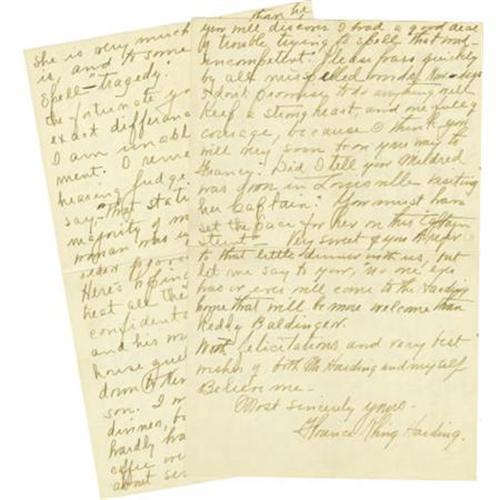 She is very much
is, and to some
Spell - "tragedy."
the fortunate yo
exact differanc
I am unabl
ment. I reme
hearing Judge
say - "That stati
majority of m
woman was i
Here's
beat all the
confident
and his wi
house gue
down to ten
son. I
dinner, b
hardly ha
office
about se
than he,
you will discover I had a good deal
of trouble trying to spell that word -
incompetent. Please pass quickly
by all misspelled words. Now - days
I don't promise to do anything well
Keep a strong heart, and one full of
courage, because I think you
will very soon be on your way to
France! Did I tell you Mildred
was down in Louisville visiting
her Captain? You must have
set the pace for her on this
stunt - Very sweet of you to refer
to that little dinner with us, but
let me say to you, no one eyes
has or ever will come to the Harding
home that will be more welcome than
Reddy Baldinger.
With felicitations and very best
wishes of both Mr Harding and myself
Believe me -
Most sincerely yours -
Florence Kling Harding.